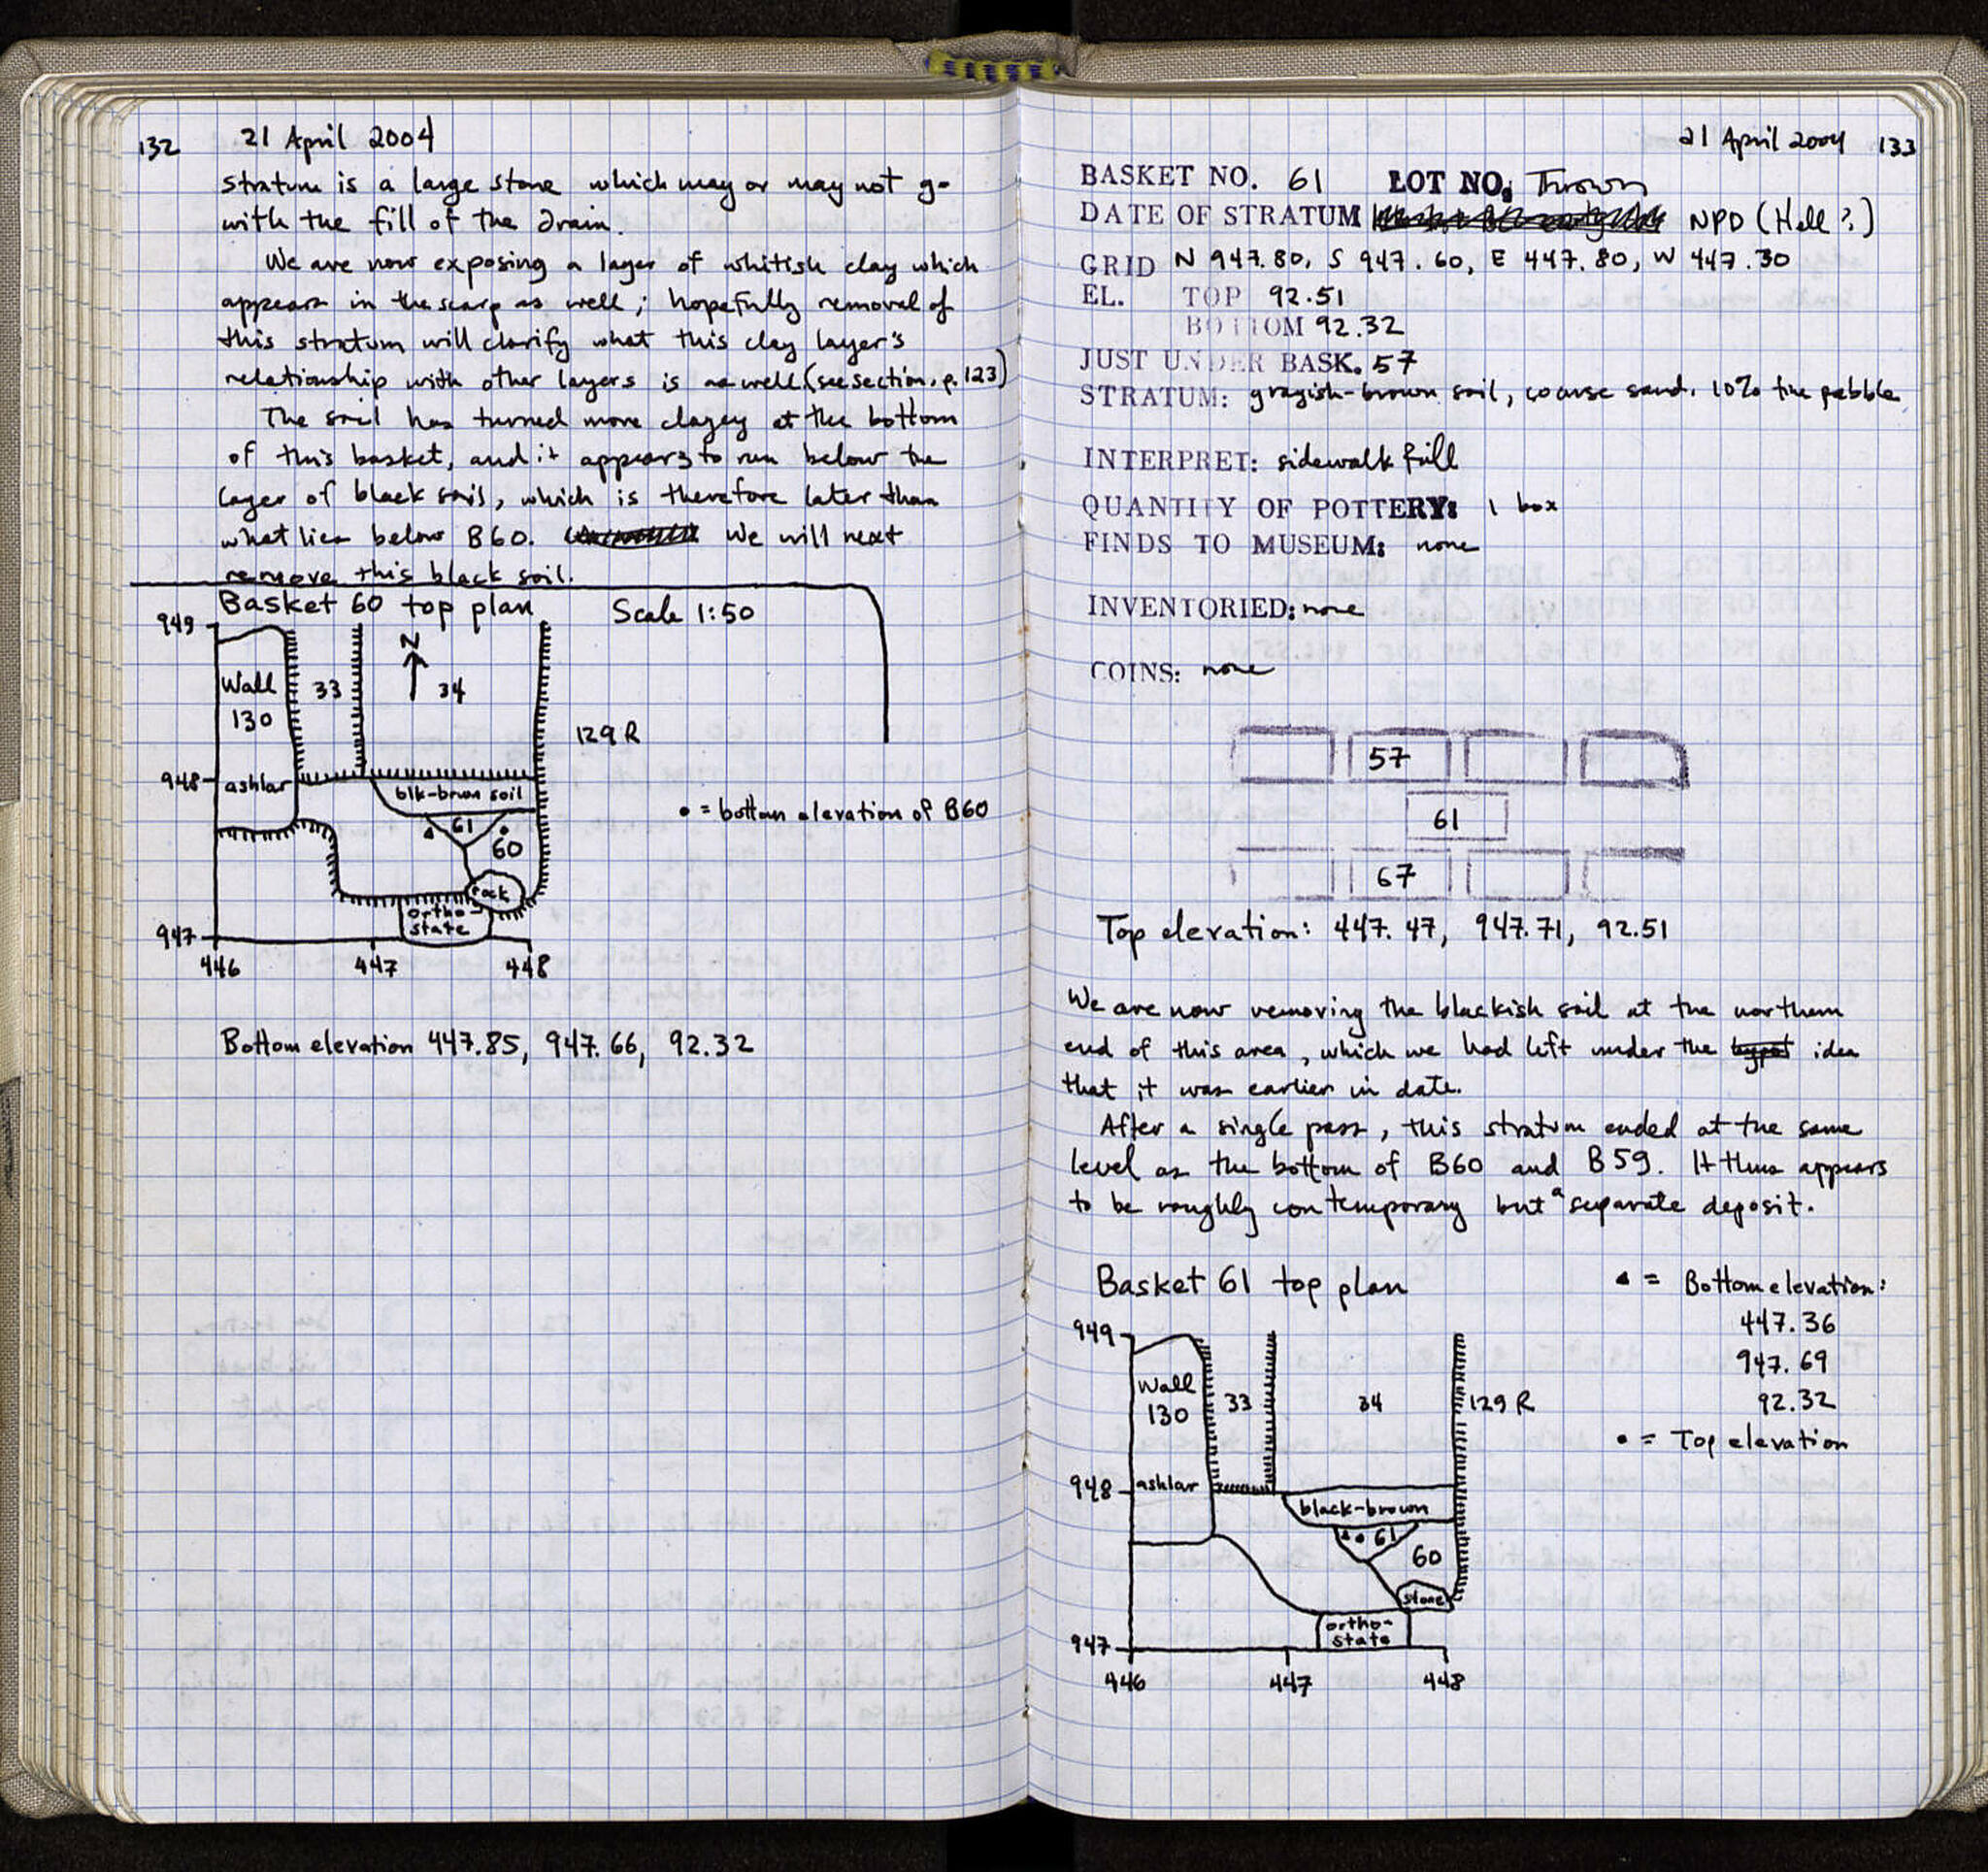 132 21 April 2004
stratum is a large stone which may or may not go
with the fill of the drain.
We are now exposing a layer of whitish clay which
appears in the scarp as well; hopefully removal of
this stratum will clarify what this clay layer's
relationship with other layers is as well. (see section, p. 123)
The soil has turned more clayey at the bottom
of this basket, and it appears to run below the
layer of black soil, which is therefore later than
what lies below B60. We will next
remove this black soil.
Basket 60 top plan Scale 1:50
949
N
Wall
130
33
34
129 R
948
ashlar
blk-brwn soil
61
60
• = bottom elevation of B60
rock
ortho-
state
947
446 447 448
Bottom elevation 447.85, 947.66, 92.32
21 April 2004 133
BASKET NO. 61 LOT NO. Thrown
DATE OF STRATUM NPD (Hell?)
GRID N 947.80, S 947.60, E 447.80, W 447.30
EL. TOP 92.51
BOTTOM 92.32
JUST UNDER BASK. 57
STRATUM: grayish-brown soil, coarse sand. 10% fine pebble
INTERPRET: sidewalk fill
QUANTITY OF POTTERY: 1 box
FINDS TO MUSEUM: none
INVENTORIED: none
COINS: none
57
61
67
Top elevation: 447.47, 947.71, 92.51
We are now removing the blackish soil at the northern
end of this area, which we had left under the idea
that it was earlier in date.
After a single pass, this stratum ended at the same
level as the bottom of B60 and B59. It thus appears
to be roughly contemporary but a separate deposit.
Basket 61 top plan
▲ = Bottom elevation:
447.36
947.69
92.32
• = Top elevation
949
Wall
130
33
34
129 R
948
ashlar
black-brown
61
60
stone
ortho-
state
947
446 447 448